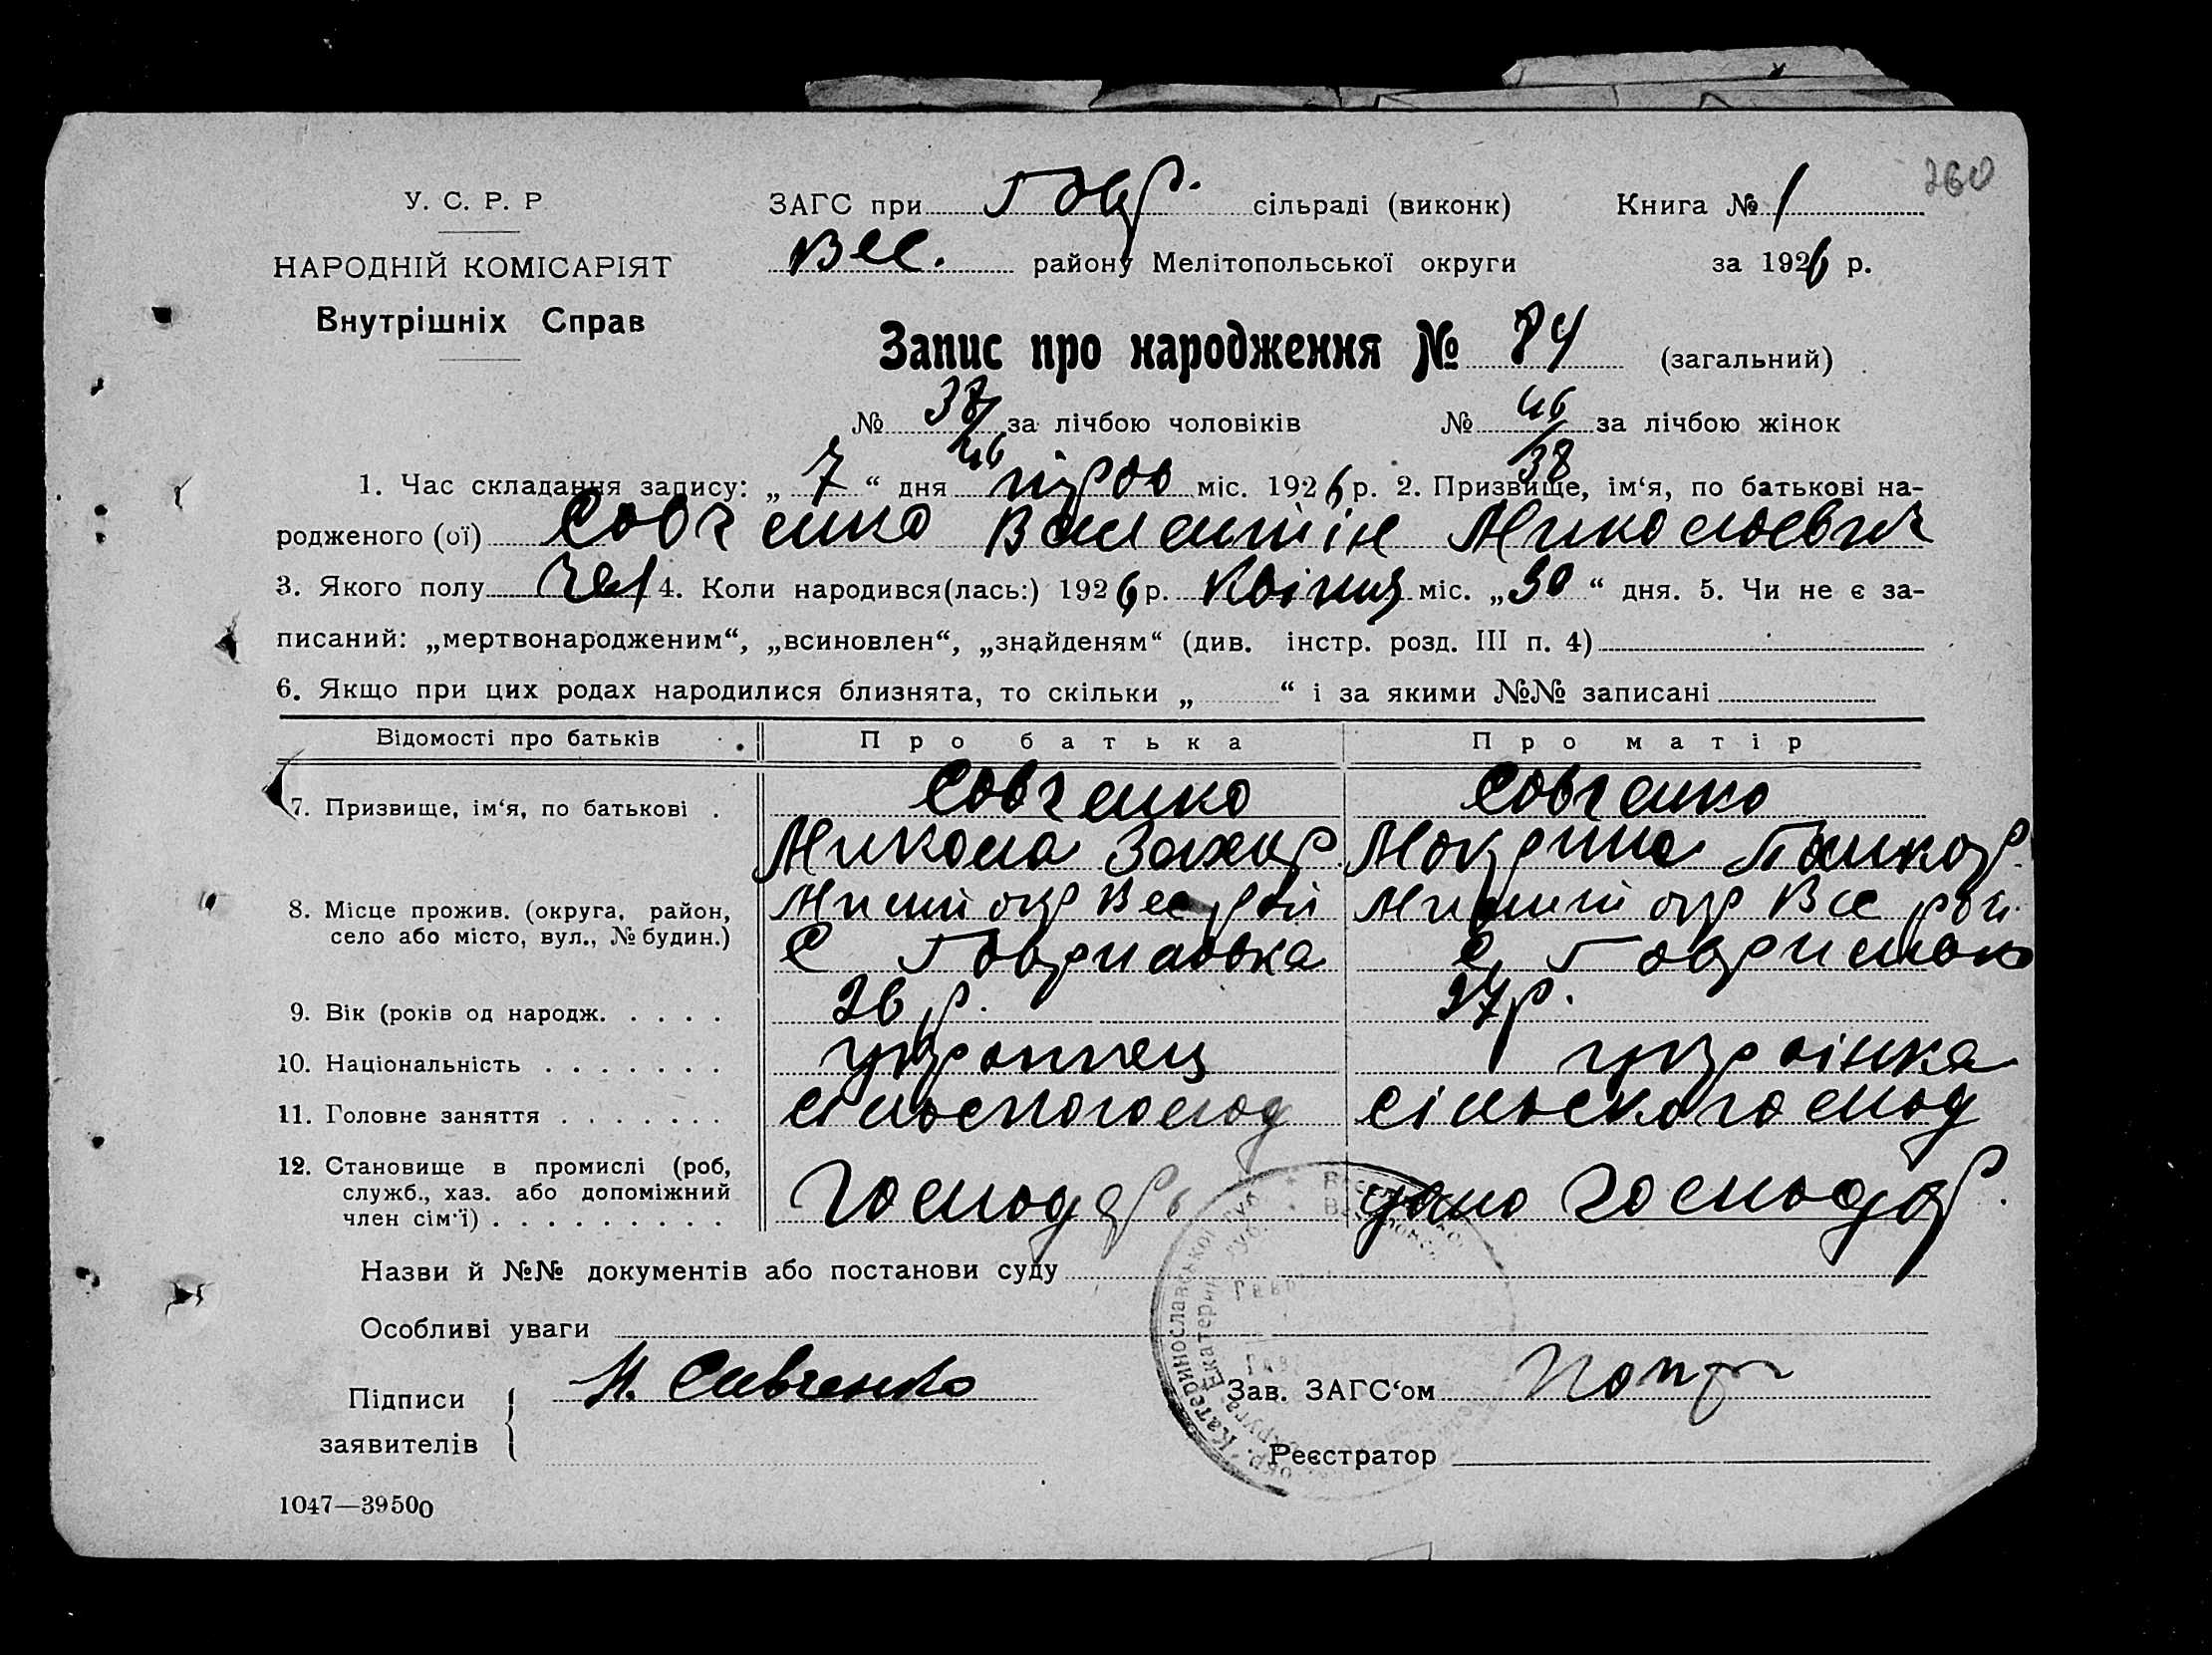 260
У. С. Р. Р
НАРОДНІЙ КОМІСАРІЯТ
Внутрішніх Справ
ЗАГС при Гавр. сільраді (виконк) Книга № 1
Вес. району Мелітопольської округи за 1926 р.
Запис про народження № 84 (загальний)
№ 38 за лічбою чоловіків № 46 за лічбою жінок
46 38
1. Час складання запису: „ 7 “ дня міс. 1926 р. 2. Призвище, ім‘я, по батькові на-
родженого (ої) Савченко Валентін Миколаевич
3. Якого полу чол 4. Коли народився(лась:) 1926 р. Квітня міс. „30“ дня. 5. Чи не є за-
писаний: „мертвонародженим“, „всиновлен“, „знайденям“ (див. інстр. розд. III п. 4)
6. Якщо при цих родах народилися близнята, то скільки „ “ і за якими №№ записані
Відомості про батьків Про батька Про матір
7. Призвище, ім‘я, по батькові . Савченко Савченко
Микола Захар. Мокрина
8. Місце прожив. (округа, район, окр Вес рай окр Вес рай.
село або місто, вул., № будин.) С Гавриловка С
9. Вік (років од народж. . . . . 26 р. 27 р.
10. Національність . . . . . . . українец українка
11. Головне заняття . . . . . . . сільскогоспод сільскогоспод
12. Становище в промислі (роб,
служб., хаз. або допоміжний господар господар.
член сім‘ї) . . . . . . . . .
Назви й №№ документів або постанови суду
Особливі уваги
Підписи Н. Савченко Зав. ЗАГС‘ом
заявителів Реєстратор
1047—39500